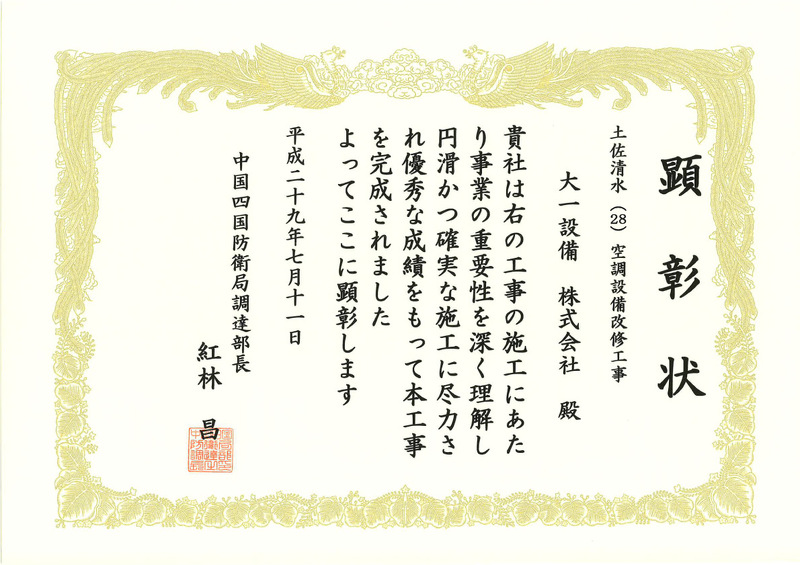 顕彰状
土佐清水（28）空調設備改修工事
大一設備　株式会社　殿
貴社は右の工事の施工にあた
り事業の重要性を深く理解し
円滑かつ確実な施工に尽力さ
れ優秀な成績をもって本工事
を完成されました
よってここに顕彰します
平成二十九年七月十一日
中国四国防衛局調達部長
紅林　昌